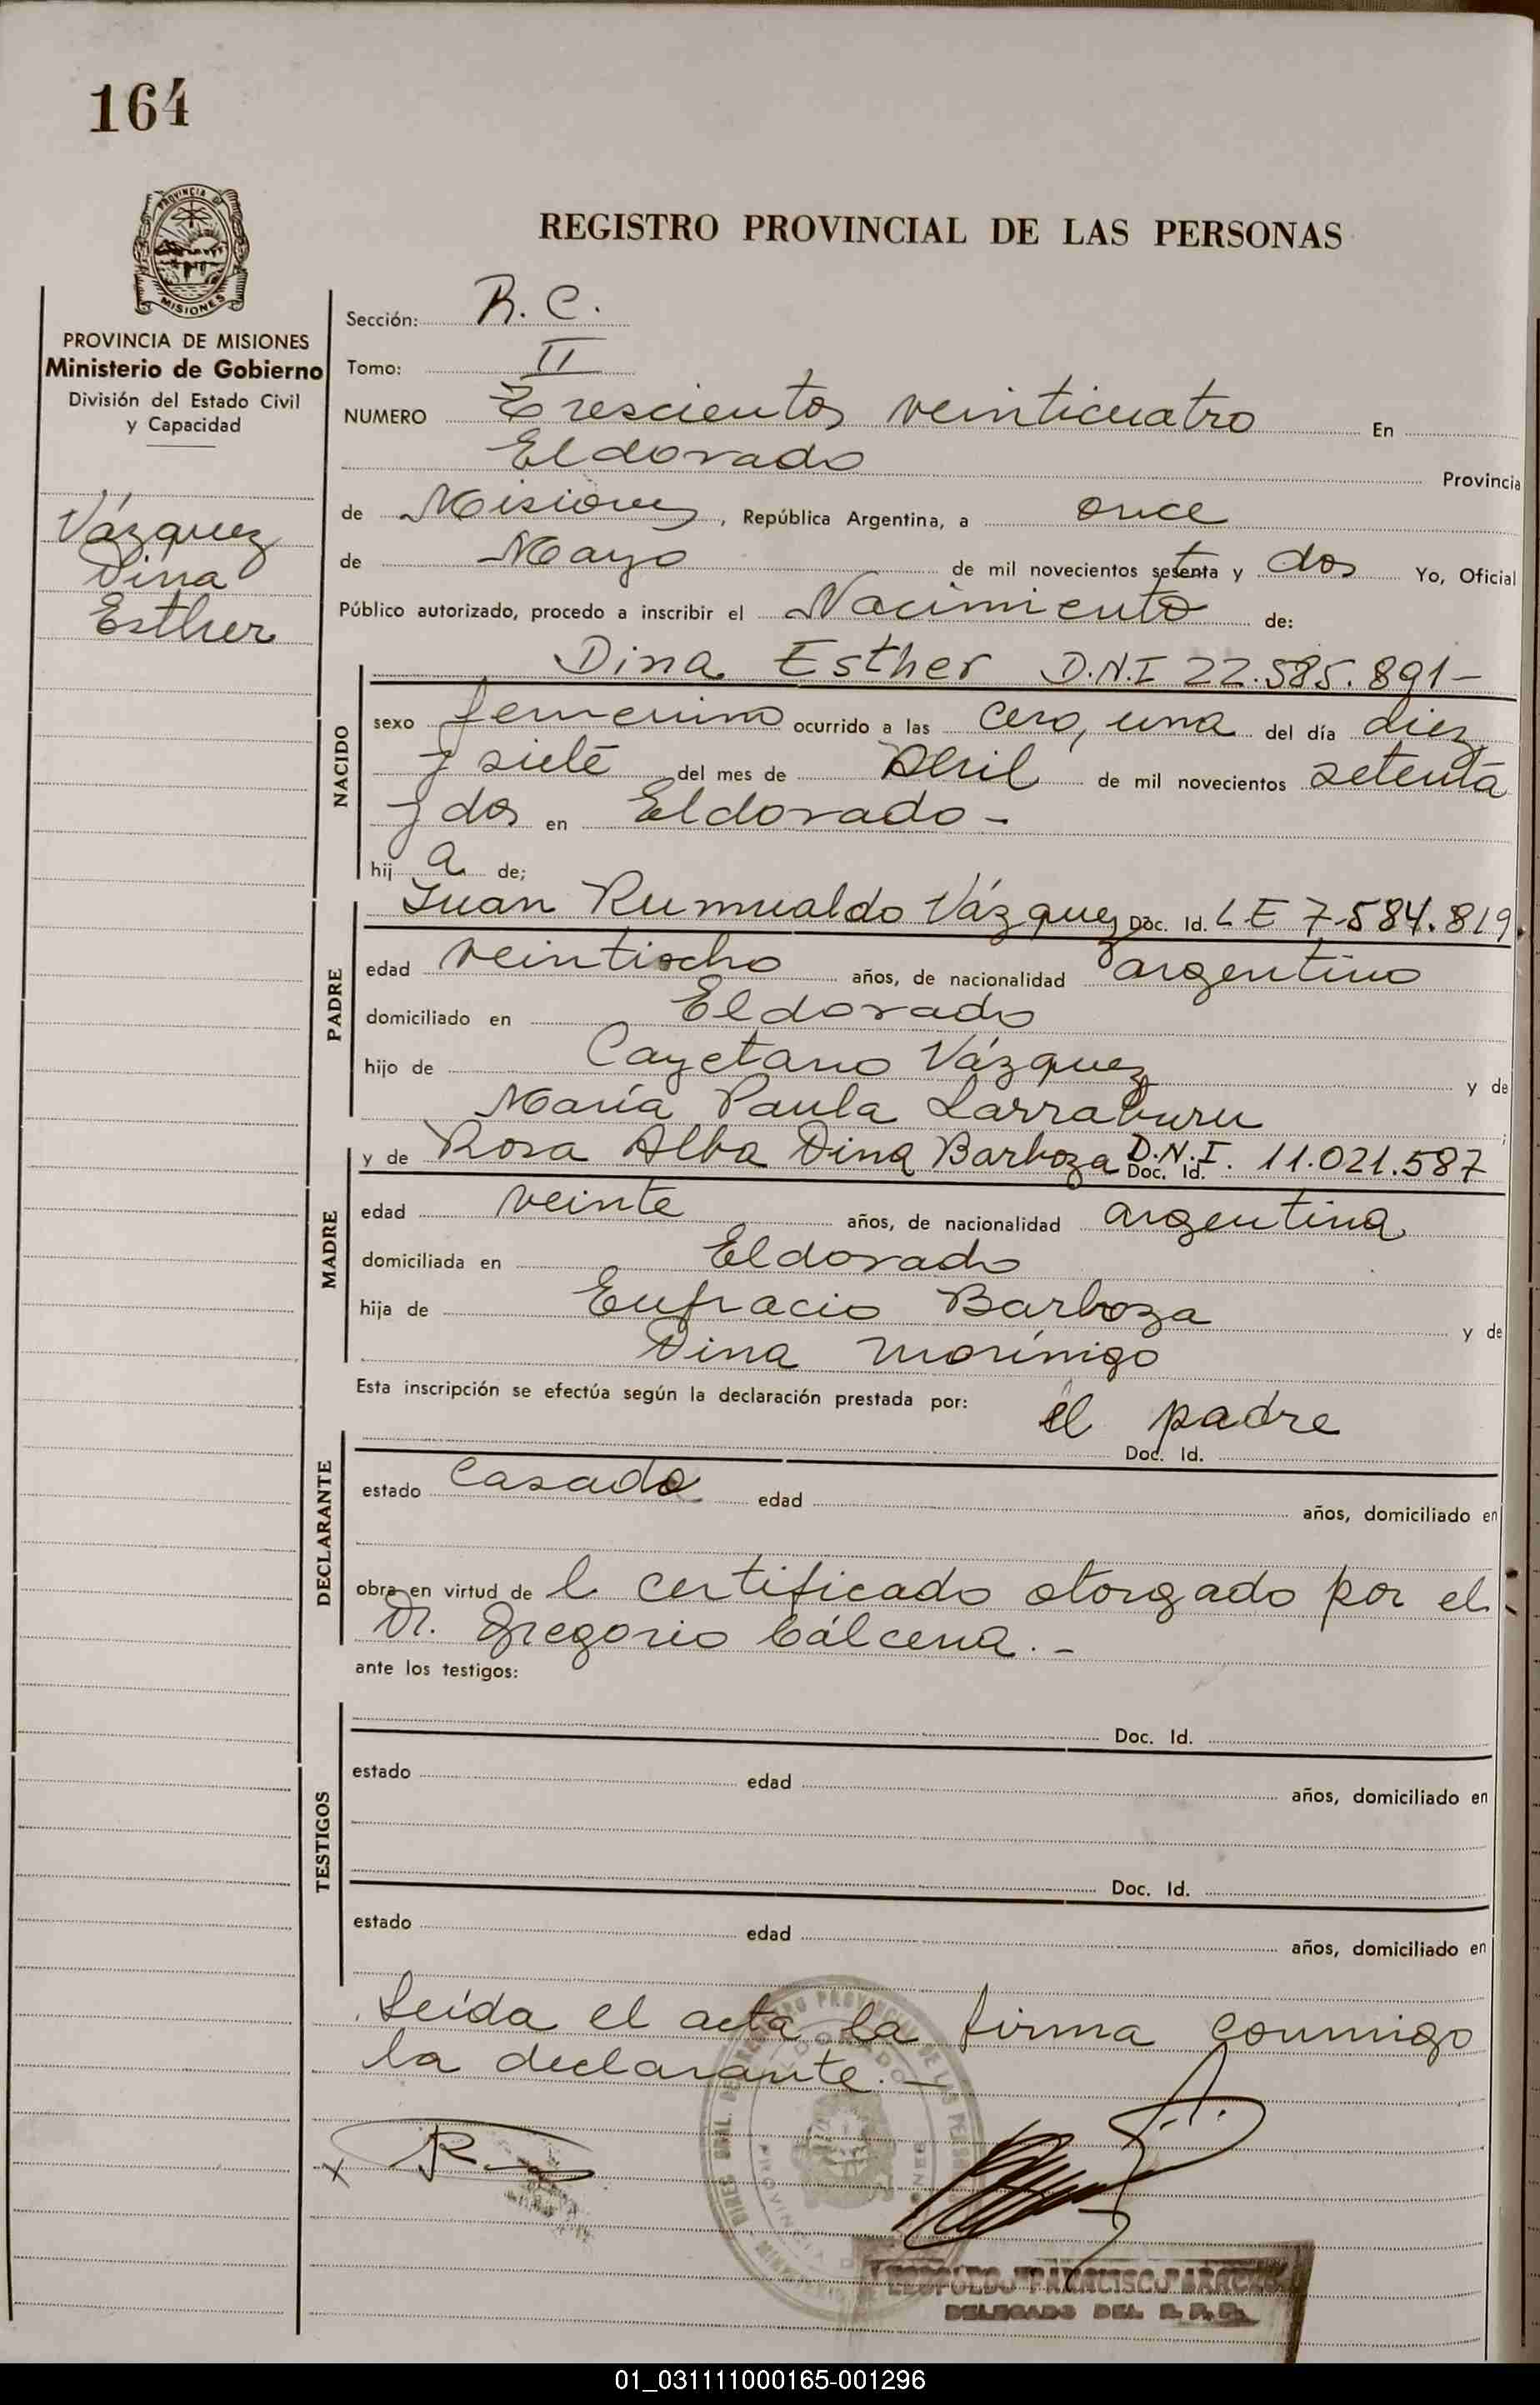 164
PROVINCIA DE MISIONES
REGISTRO PROVINCIAL DE LAS PERSONAS
PROVINCIA DE MISIONES
Ministerio de Gobierno
División del Estado Civil
y Capacidad
Vázquez
Dina
Esther
Sección: R. C.
Tomo: II
NUMERO Trescientos veinticuatro En
Eldorado Provincia
de Misiones, República Argentina, a once
de Mayo de mil novecientos setenta y dos Yo, Oficial
Público autorizado, procedo a inscribir el Nacimiento de:
Dina Esther D.N.I 22.585.891-
NACIDO
sexo femenino ocurrido a las cero, una del día diez
y siete del mes de Abril de mil novecientos setenta
y dos en Eldorado -
hij a de;
Juan Rumualdo Vázquez Doc. Id. L E 7.584.819
PADRE
edad veintiocho años, de nacionalidad argentino
domiciliado en Eldorado
hijo de Cayetano Vázquez y de
María Paula Larraburu;
y de Rosa Alba Dina Barboza D.N.I. Doc. Id. 11.021.587
MADRE
edad veinte años, de nacionalidad argentina
domiciliada en Eldorado
hija de Eufracio Barboza y de
Dina Morínigo
Esta inscripción se efectúa según la declaración prestada por: el padre
Doc. Id.
DECLARANTE
estado casado edad años, domiciliado en
obra en virtud de l certificado otorgado por el
Dr. Gregorio Cálcena. -
ante los testigos:
Doc. Id.
TESTIGOS
estado edad años, domiciliado en
Doc. Id.
estado edad años, domiciliado en
Leída el acta la firma conmigo
la declarante. -
x
LEOPOLDO FRANCISCO
DELEGADO DEL R. P. P.
01_031111000165-001296